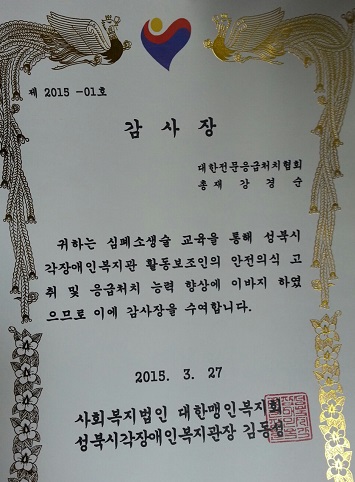 제 2015 -01호
감 사 장
대한전문응급처치협회
총재 강 경 순
귀하는 심폐소생술 교육을 통해 성북시
각장애인복지관 활동보조인의 안전의식 고
취 및 응급처치 능력 향상에 이바지 하였
으므로 이에 감사장을 수여합니다.
2015. 3. 27
사회복지법인 대한맹인복지회
성북시각장애인복지관장 김동성